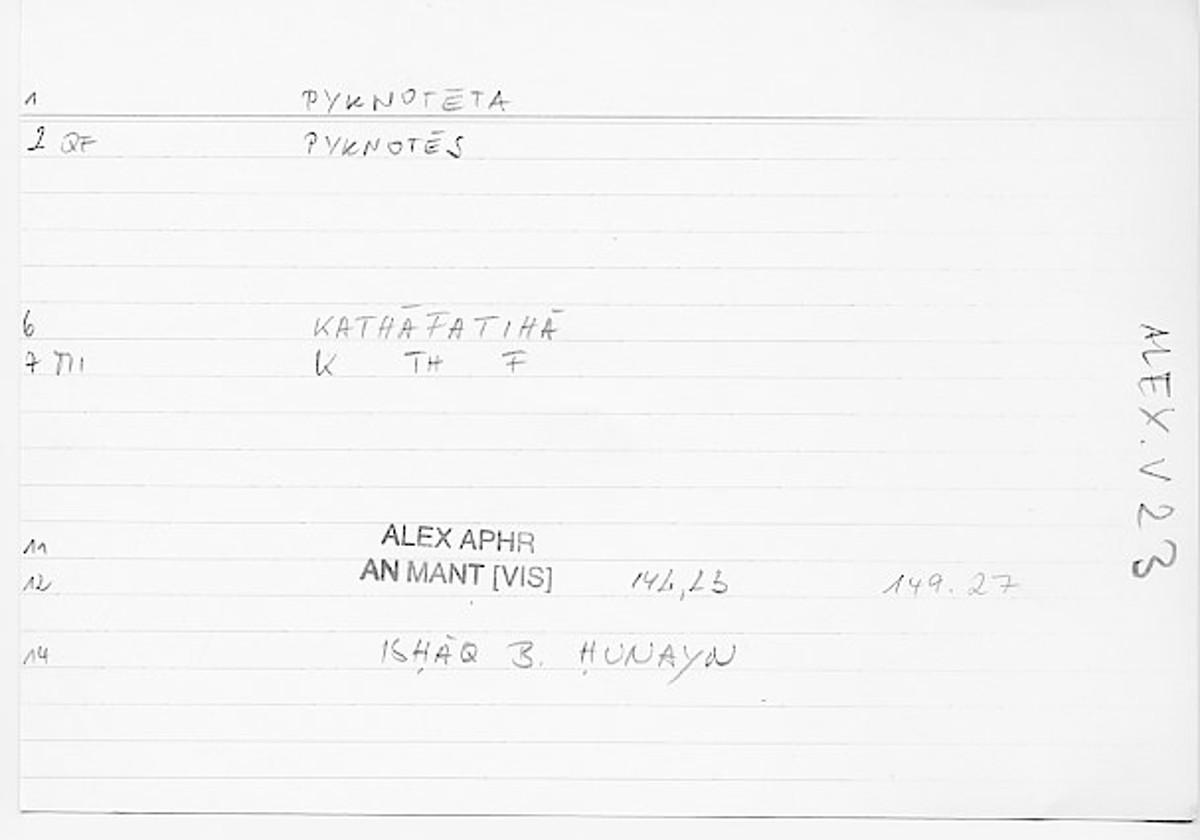 1 PYKNOTĒTA
2 QF PYKNOTĒS
6 KATHĀFATIHĀ
7 K TH F
11 ALEX APHR
12 AN MANT [VIS] 149.27
14 ISḤĀQ B. ḤUNAYN
ALEX. V 23